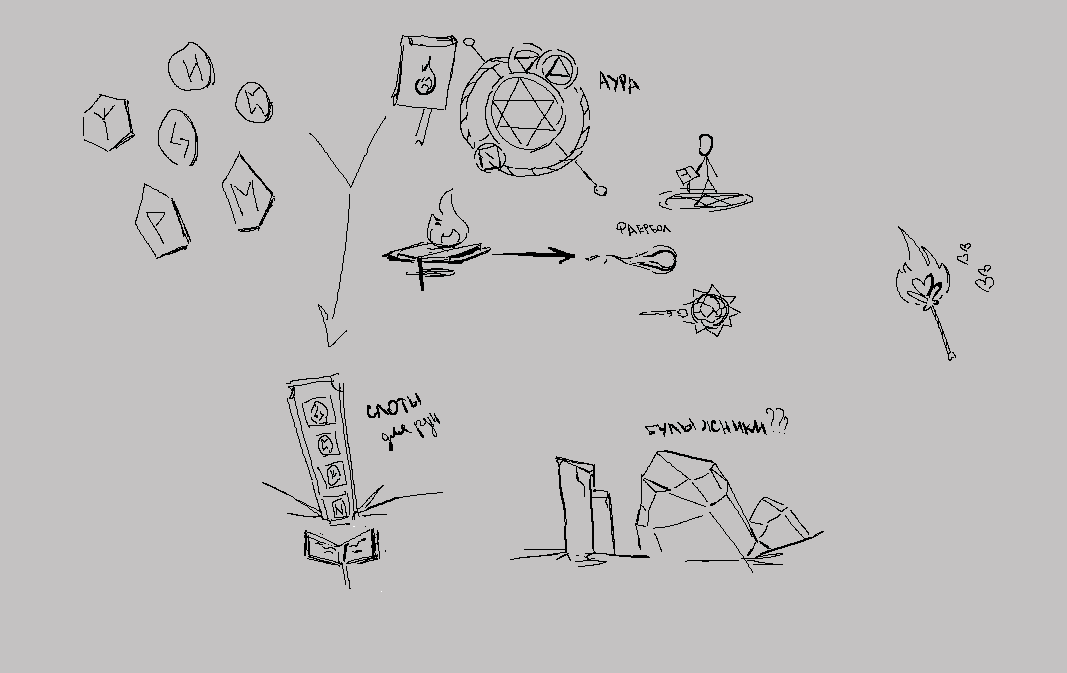 АУРА
ФАЕРБОЛ
СЛОТЫ
для рун
БУЛЫЖНИКИ??